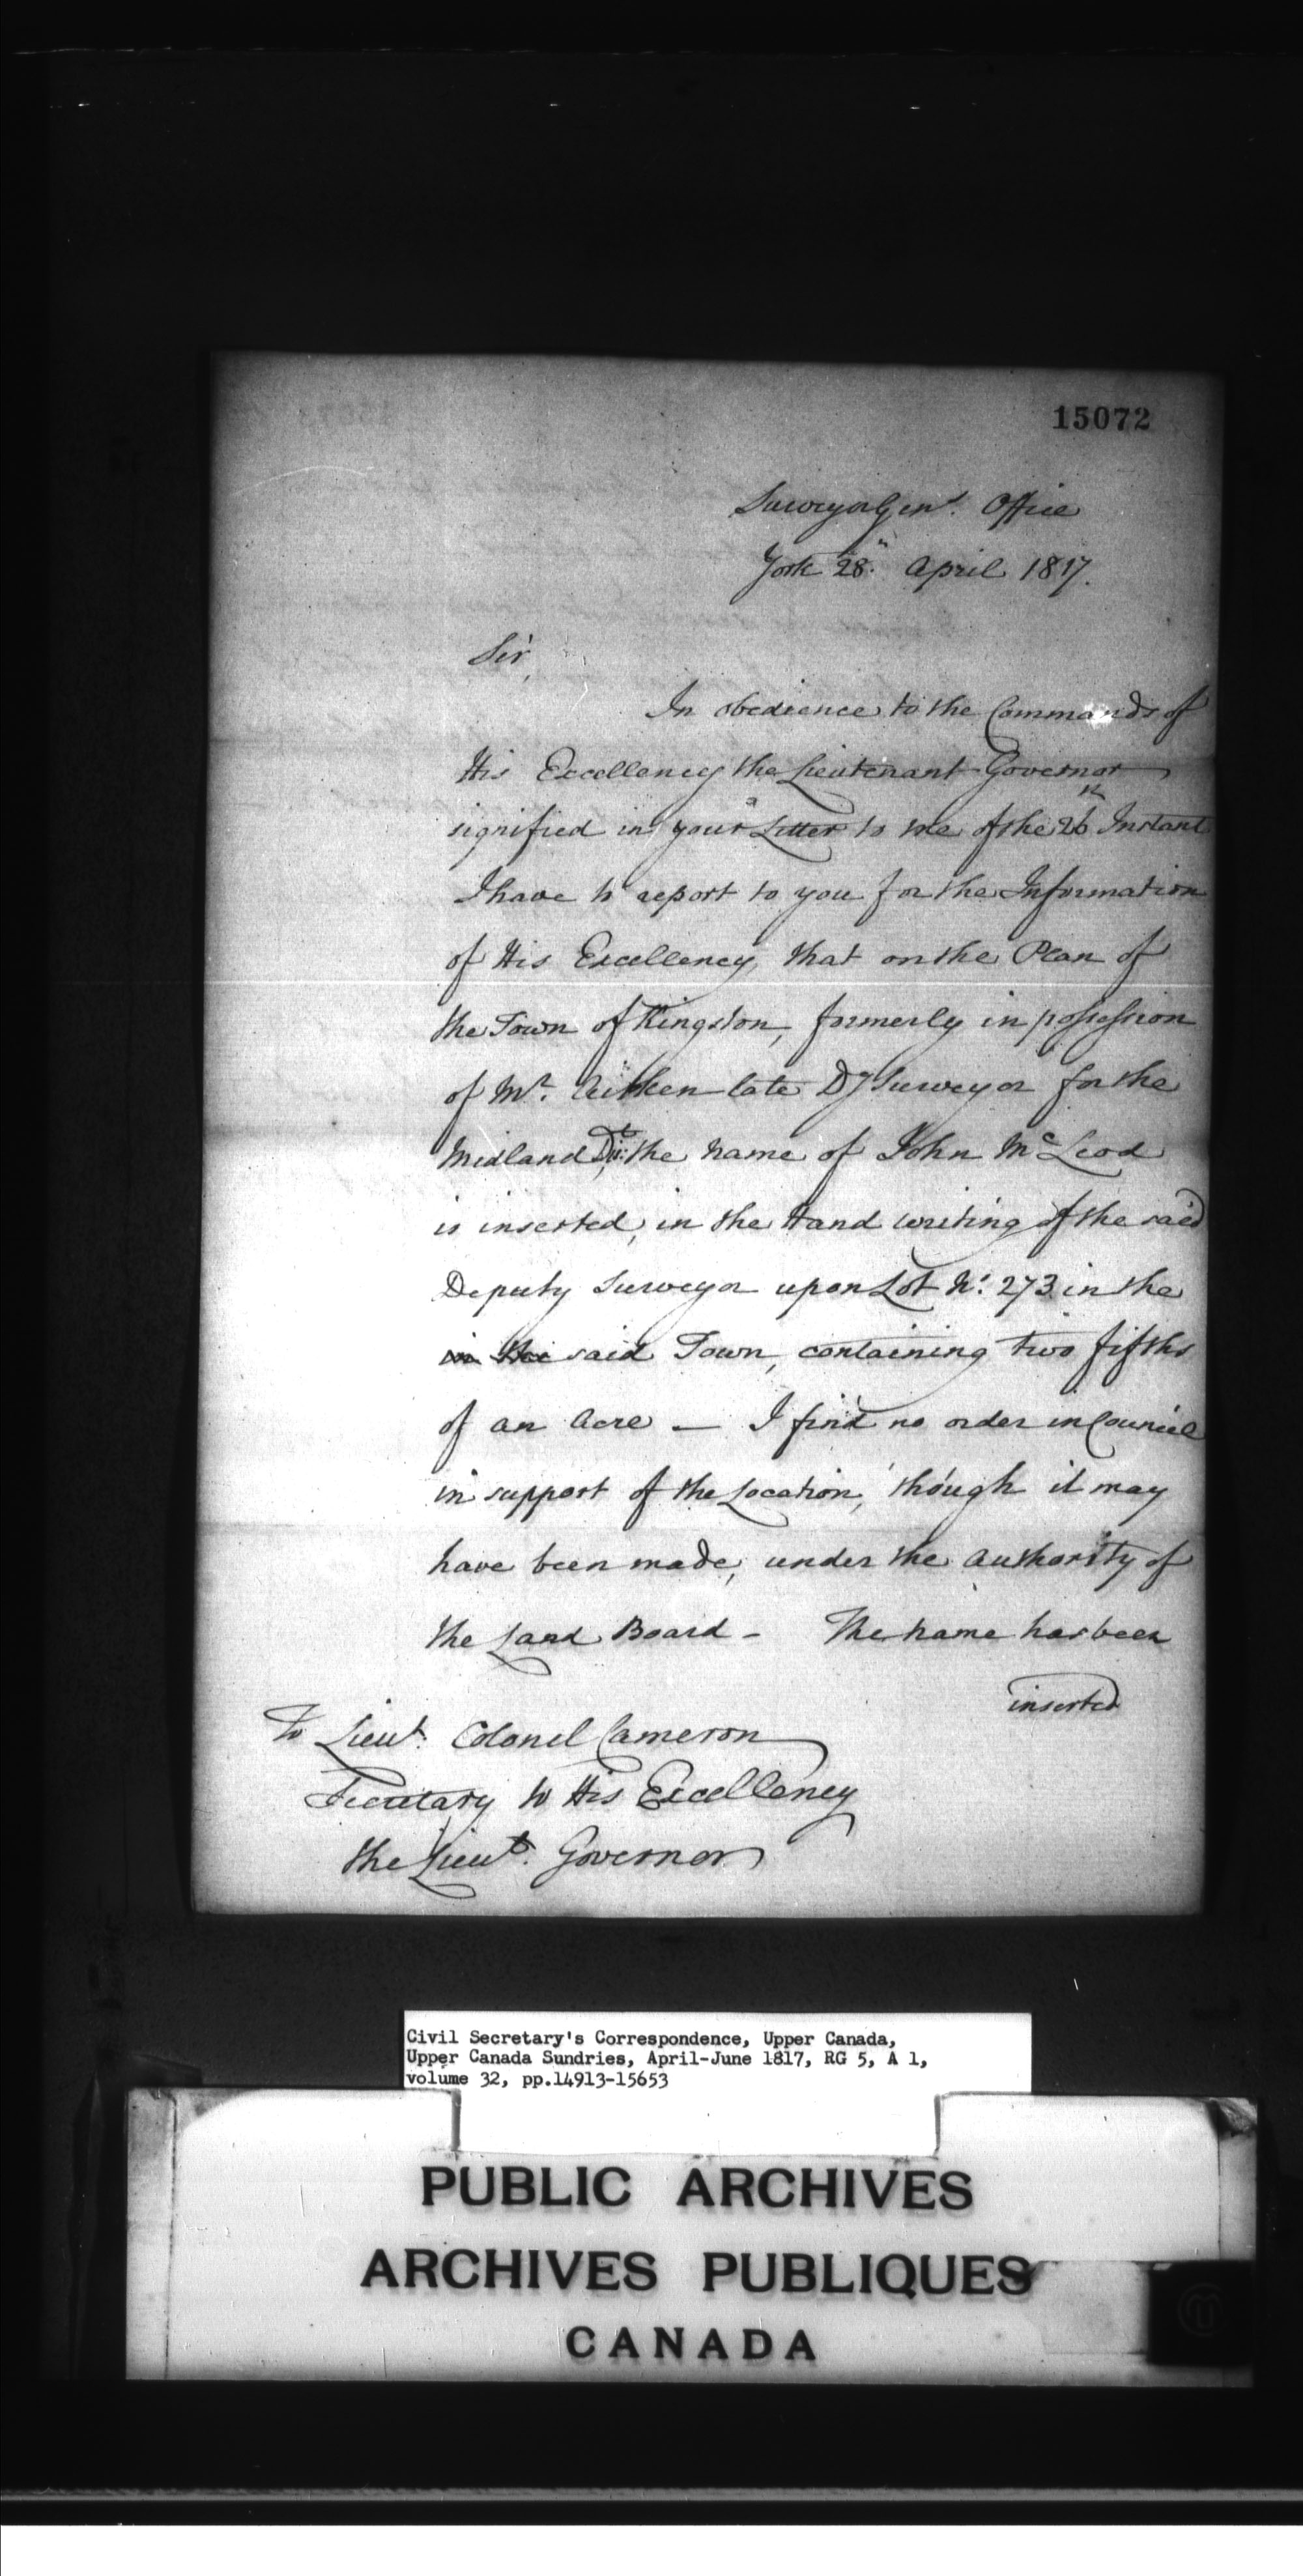 15072
Surveyor Genl. Office
York 28th April 1817.
Sir,
In obedience to the Commands of
His Excellency the Lieutenant Governor
signified in your Letter to me of the 26th Instant
I have to report to you for the Information
of His Excellency, that on the Plan of
the Town of Kingston, formerly in possession
of Mr. Aitken late Dy Surveyor for the
Midland Dist: the name of John McLeod
is inserted, in the Hand writing of the said
Deputy Surveyor upon Lot No. 273 in the
in the said Town, containing two fifths
of an Acre — I find no order in Council
in support of the Location, though it may
have been made, under the Authority of
the Land Board - The name has been
inserted
To Lieut. Colonel Cameron
Secretary to His Excellency
the Lieut. Governor
Civil Secretary's Correspondence, Upper Canada,
Upper Canada Sundries, April-June 1817, RG 5, A 1,
volume 32, pp.14913-15653
PUBLIC ARCHIVES
ARCHIVES PUBLIQUES
CANADA